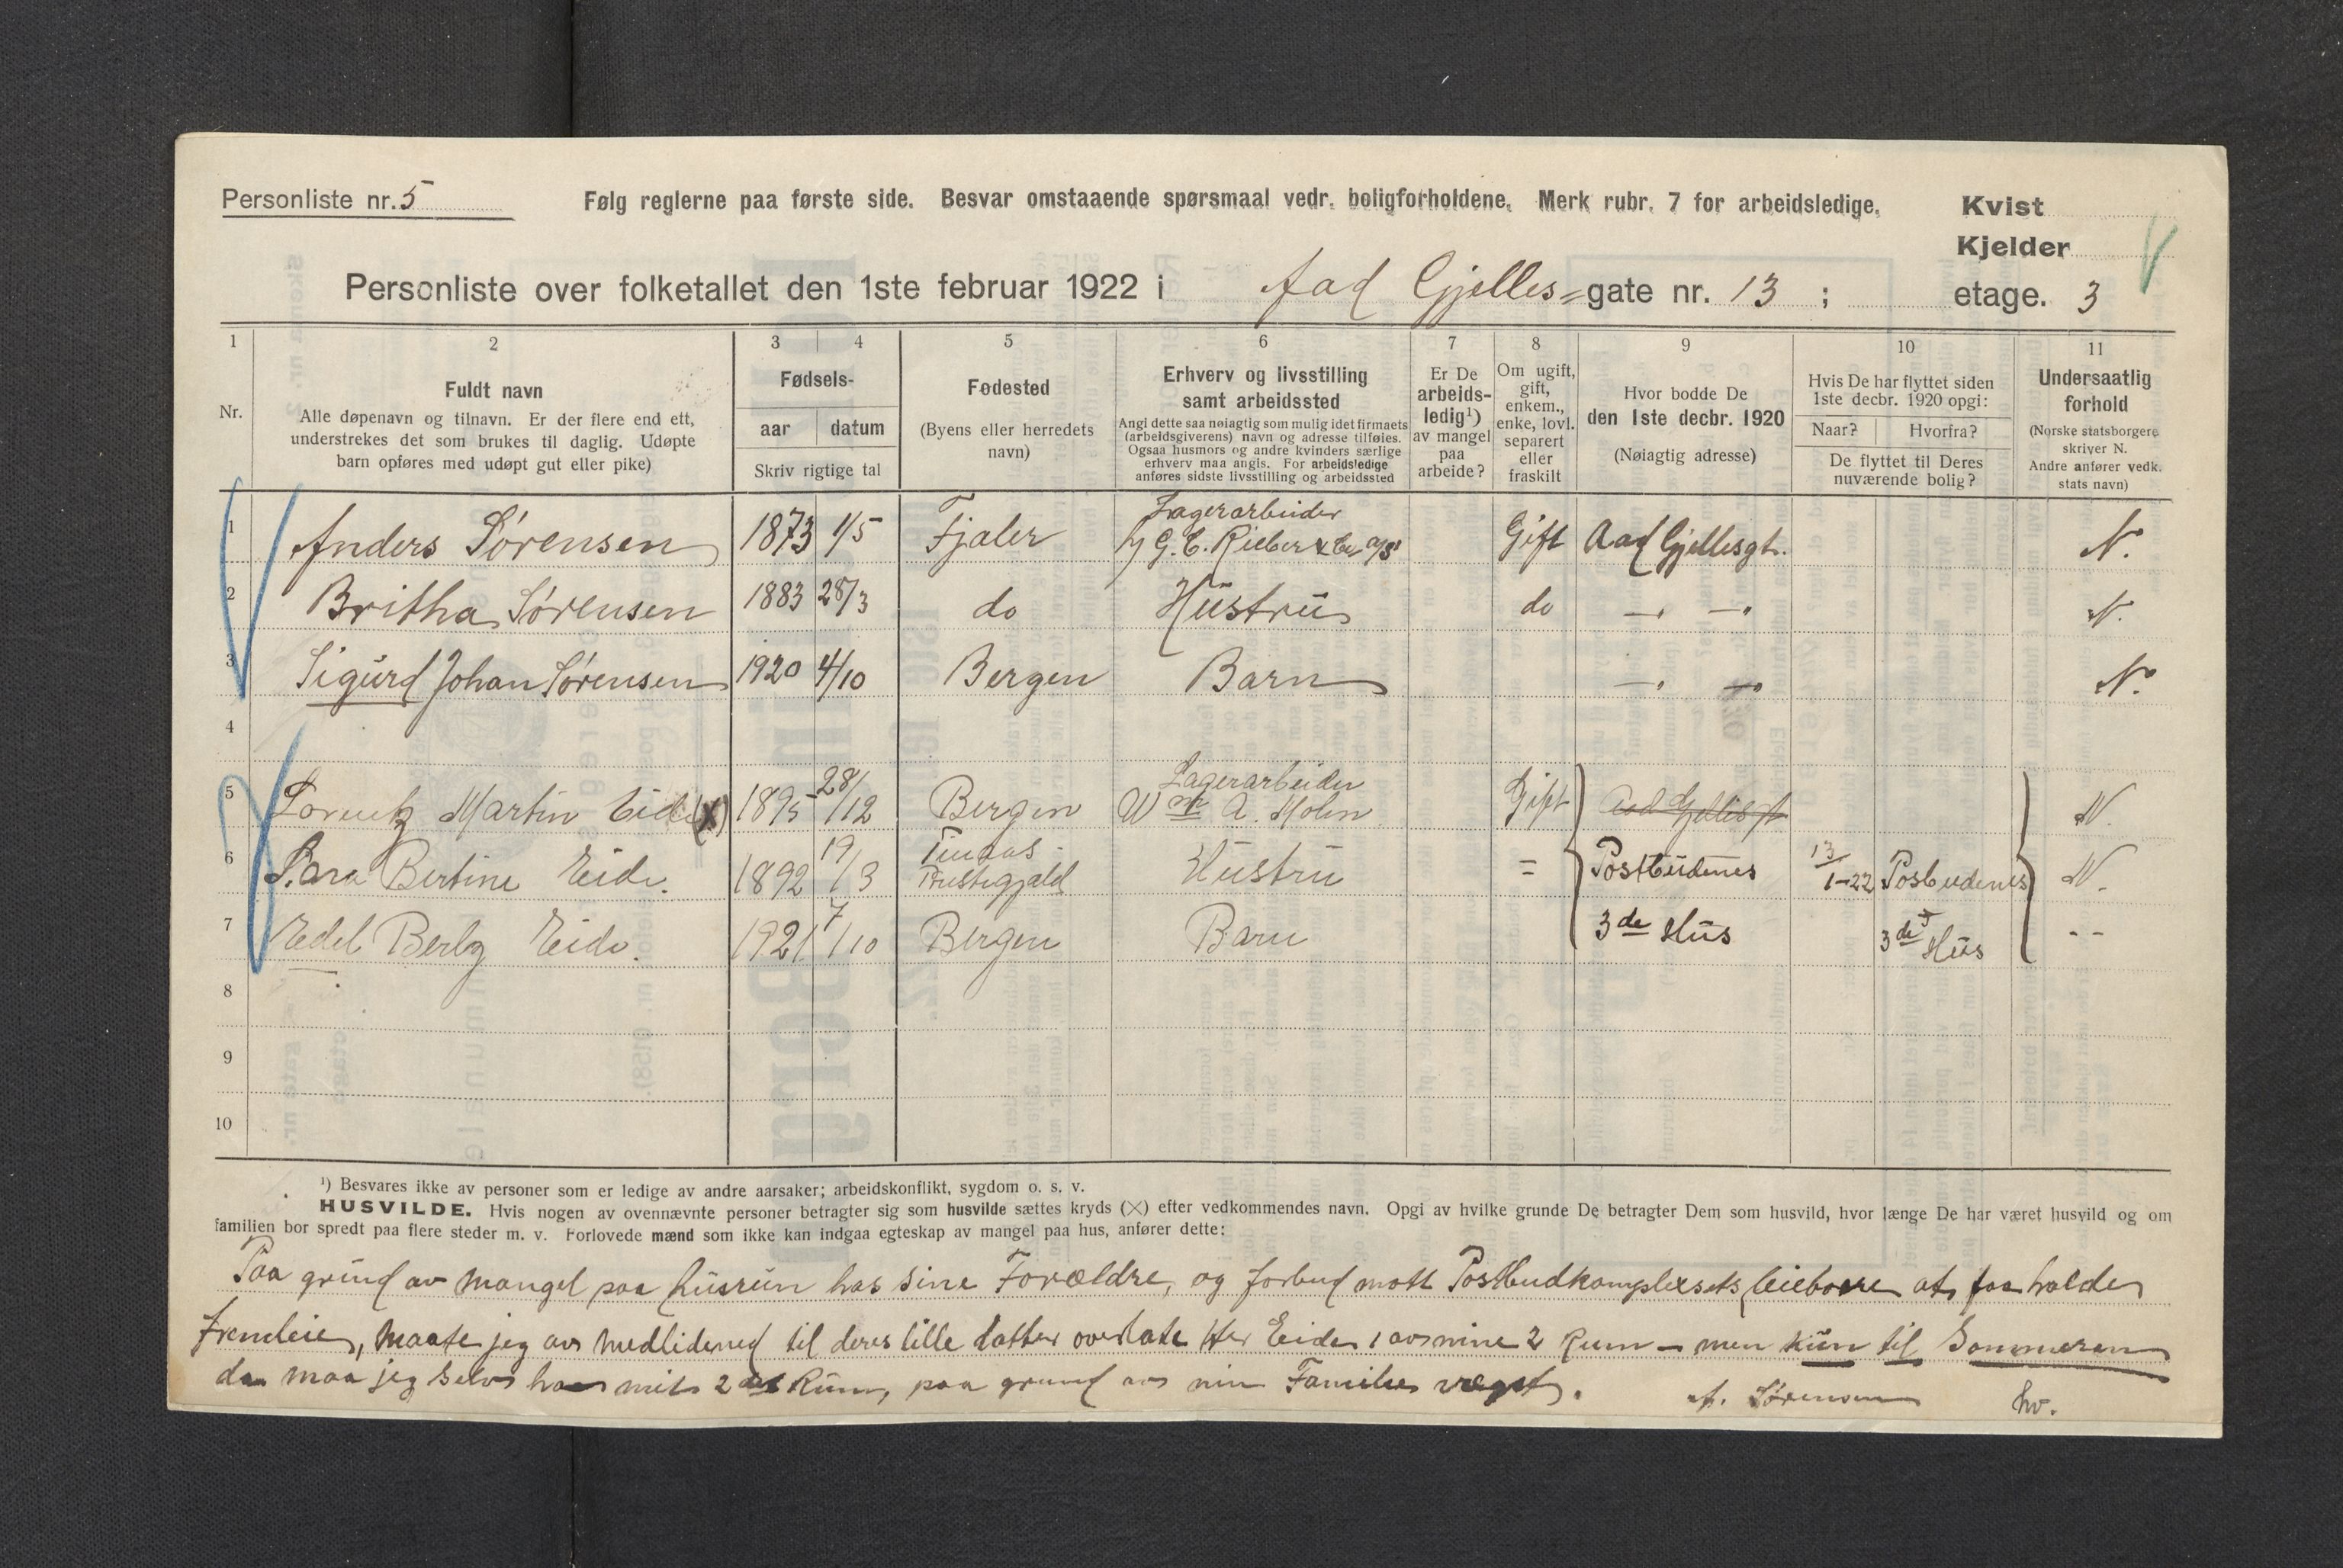 Personliste nr. 5
Følg reglerne paa første side. Besvar omstaaende spørsmaal vedr. boligforholdene. Merk rubr. 7 for arbeidsledige.
Kvist
Kjelder
Personliste over folketallet den 1ste februar 1922 i Aad Gjelles=gate nr. 13 ; etage. 3
1 2 3 4 5 6 7 8 9 10 11
Nr.
Fuldt navn
Alle døpenavn og tilnavn. Er der flere end ett,
understrekes det som brukes til daglig. Udøpte
barn opføres med udøpt gut eller pike)
Fødsels-
aar datum
Skriv rigtige tal
Fødested
(Byens eller herredets
navn)
Erhverv og livsstilling
samt arbeidssted
Angi dette saa nøiagtig som mulig idet firmaets
(arbeidsgiverens) navn og adresse tilføies.
Ogsaa husmors og andre kvinders særlige
erhverv maa angis. For arbeidsledige
anføres sidste livsstilling og arbeidssted
Er De
arbeids-
ledig¹)
av mangel
paa
arbeide?
Om ugift,
gift,
enkem.,
enke, lovl.
separert
eller
fraskilt
Hvor bodde De
den 1ste decbr. 1920
(Nøiagtig adresse)
Hvis De har flyttet siden
1ste decbr. 1920 opgi:
Naar? Hvorfra?
De flyttet til Deres
nuværende bolig?
Undersaatlig
forhold
(Norske statsborgere
skriver N.
Andre anfører vedk.
stats navn)
1 Anders Sørensen 1873 1/5 Fjaler Lagerarbeider G. C. Rieber & Co a/s Gift Aad Gjellesgt. N.
2 Britha Sørensen 1883 28/3 do Hustru do — — N.
3 Sigurd Johan Sørensen 1920 4/10 Bergen Barn — — N.
4
5 Lorentz Martin Eide (X) 1895 28/12 Bergen Lagerarbeider Wm A. Mohn Gift Aad Gjelles gt N.
6 Sara Bertine Eide. 1892 19/3 Prestegjeld Hustru = Postbudenes 13/1-22 Posbudenes N.
7 Edel Eide. 1921 7/10 Bergen Barn 3de Hus 3de Hus --
8
9
10
¹) Besvares ikke av personer som er ledige av andre aarsaker; arbeidskonflikt, sygdom o. s. v.
HUSVILDE. Hvis nogen av ovennævnte personer betragter sig som husvilde sættes kryds (X) efter vedkommendes navn. Opgi av hvilke grunde De betragter Dem som husvild, hvor længe De har været husvild og om
familien bor spredt paa flere steder m. v. Forlovede mænd som ikke kan indgaa egteskap av mangel paa hus, anfører dette:
Paa grund av mangel paa husrum hos sine Forældre, og forbud mott Postbudkompleksets leieboere at holde
fremleie, maate jeg av medlidened til deres lille datter overlate Her Eide 1 av mine 2 Rum — men kun til Sommeren
da maa jeg selv ha mit 2det Rum, paa grund av min Families vægst.
A. Sørensen hv.